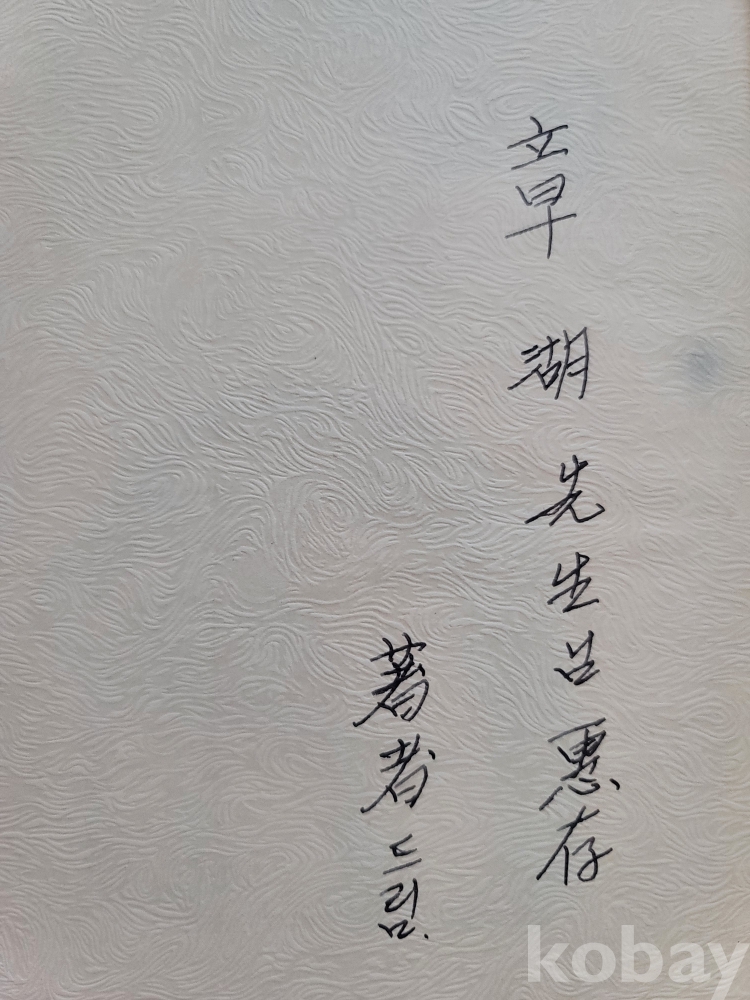 章湖先生님惠存
著者드림.
kobay